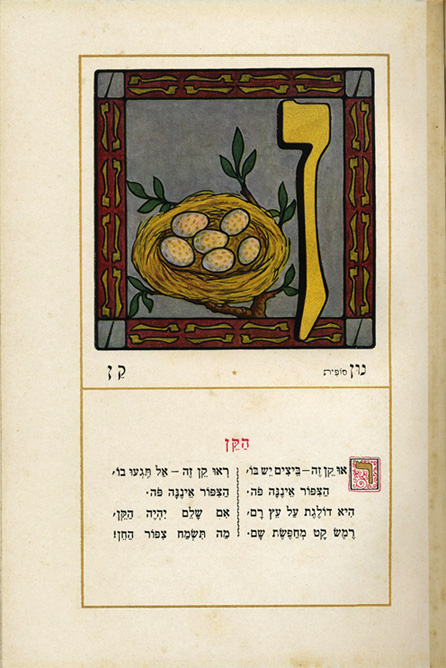 ן
נוּן סוֹפִית
קֵן
הַקֵּן
רְאוּ קֵן זֶה – בֵּיצִים יֵשׁ בּוֹ,
הַצִּפּוֹר אֵינֶנָּה פֹּה.
הִיא דוֹלֶגֶת עַל עֵץ רָם,
רֶמֶשׂ קָט מְחַפֶּשֶׂת שָׁם.
רְאוּ קֵן זֶה – אַל תִּגְּעוּ בוֹ,
הַצִּפּוֹר אֵינֶנָּה פֹּה.
אִם שָׁלֵם יִהְיֶה הַקֵּן,
מַה תִּשְׂמַח צִפּוֹר הַחֵן!